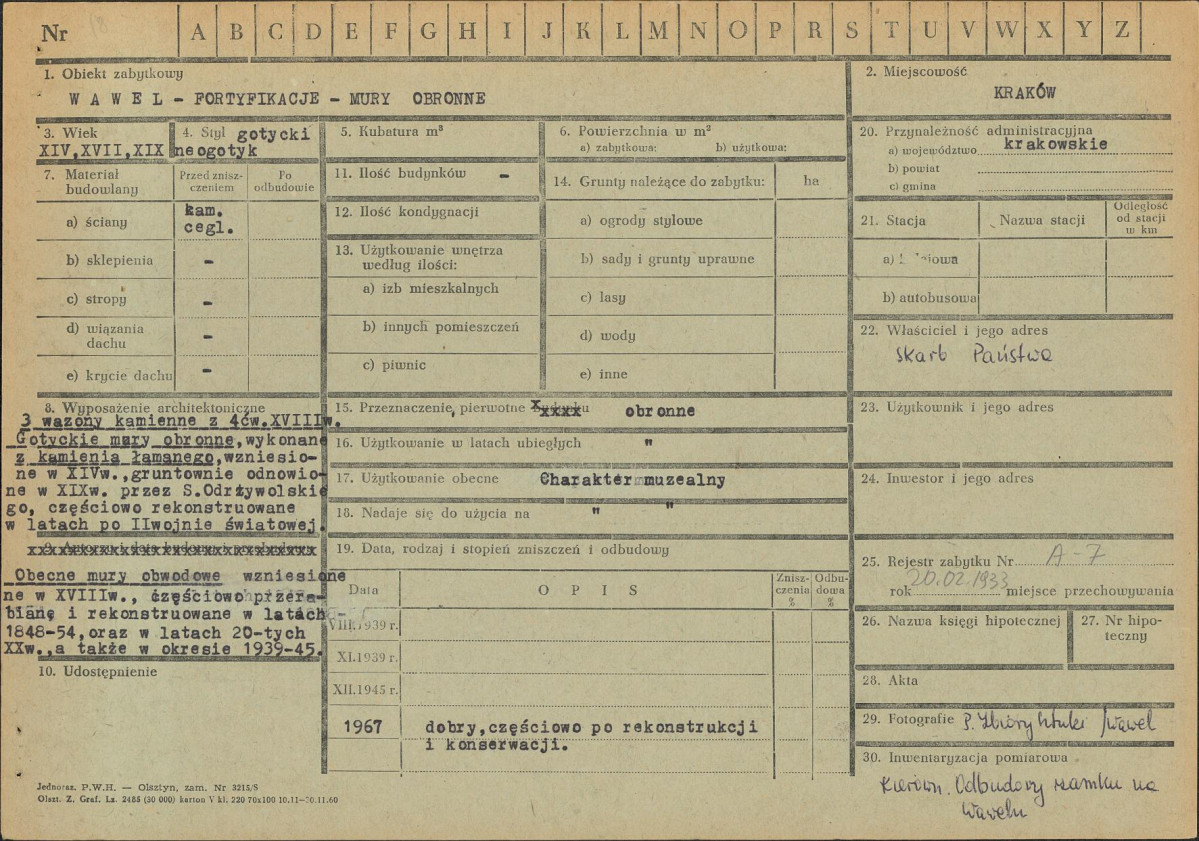 Nr A B C D E F G H I J K L M N O P R S T U V W X Y Z
1. Obiekt zabytkowy
W A W E L - FORTYFIKACJE - MURY OBRONNE
2. Miejscowość
KRAKÓW
3. Wiek
XIV,XVII,XIX
4. Styl gotycki
neogotyk
5. Kubatura m³
6. Powierzchnia w m²
a) zabytkowa: b) użytkowa:
7. Materiał
budowlany
Przed znisz-
czeniem
Po
odbudowie
a) ściany
kam.
cegl.
b) sklepienia -
c) stropy -
d) wiązania
dachu -
e) krycie dachu -
8. Wyposażenie architektoniczne
3 wazony kamienne z 4ćw.XVIIIw.
Gotyckie mury obronne,wykonane
z kamienia łamanego,wzniesio-
ne w XIVw.,gruntownie odnowio-
ne w XIXw. przez S.Odrżywolskie
go, częściowo rekonstruowane
w latach po IIwojnie światowej.
Obecne mury obwodowe wzniesione
ne w XVIIIw., częściowo przera-
bianę i rekonstruowane w latach
1848-54,oraz w latach 20-tych
XXw.,a także w okresie 1939-45.
10. Udostępnienie
11. Ilość budynków -
12. Ilość kondygnacji
13. Użytkowanie wnętrza
według ilości:
a) izb mieszkalnych
b) innych pomieszczeń
c) piwnic
14. Grunty należące do zabytku: ha
a) ogrody stylowe
b) sady i grunty uprawne
c) lasy
d) wody
e) inne
15. Przeznaczenie, pierwotne obronne
16. Użytkowanie w latach ubiegłych "
17. Użytkowanie obecne Charakter muzealny
18. Nadaje się do użycia na " "
19. Data, rodzaj i stopień zniszczeń i odbudowy
Data
O P I S
Znisz-
czenia
%
Odbu-
dowa
%
VIII.1939 r.
XI.1939 r.
XII.1945 r.
1967 dobry,częściowo po rekonstrukcji
i konserwacji.
20. Przynależność administracyjna
a) województwo krakowskie
b) powiat
c) gmina
21. Stacja
Nazwa stacji
Odległość
od stacji
w km
a)
b) autobusowa
22. Właściciel i jego adres
Skarb Państwa
23. Użytkownik i jego adres
24. Inwestor i jego adres
25. Rejestr zabytku Nr A-7
rok 20.02.1933 miejsce przechowywania
26. Nazwa księgi hipotecznej
27. Nr hipo-
teczny
28. Akta
29. Fotografie P. Zbiory Sztuki /Wawel
30. Inwentaryzacja pomiarowa
Kierown. Odbudowy zamku na
Wawelu
Jednoraz. P.W.H. — Olsztyn, zam. Nr 3215/S
Olszt. Z. Graf. Lz. 2485 (30 000) karton V kl. 220 70x100